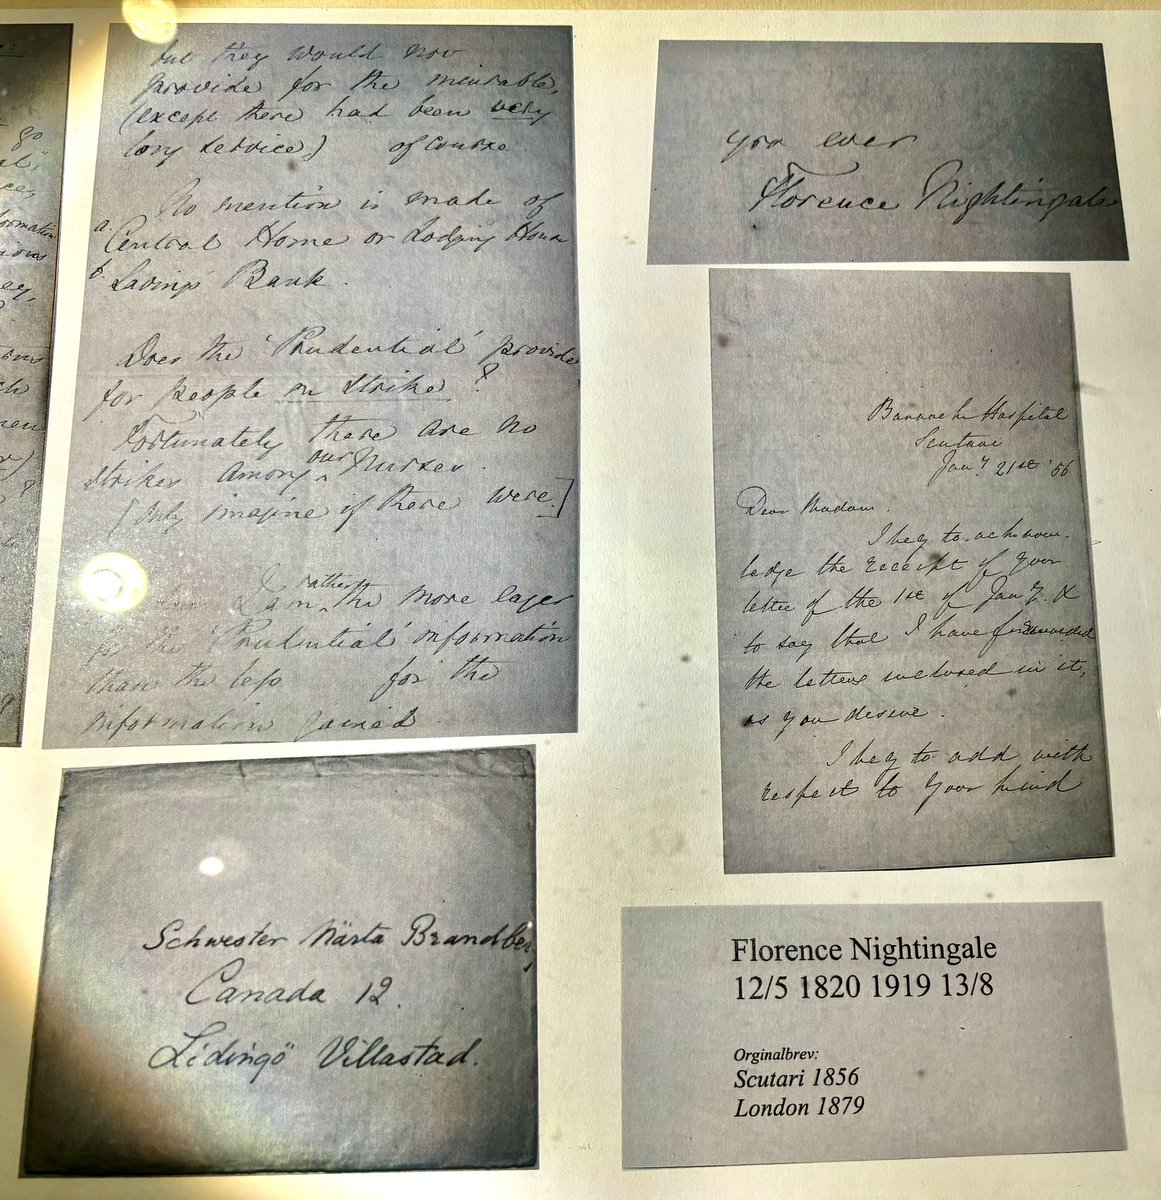 go
al",
ce,
formation
ions
ey,
ch
but they would not
provide for the miserable,
(except there had been very
long service) of course.
No mention is made of
a. Central Home or Lodging House
b. Savings Bank.
Does the 'Prudential' provide
for people on strike?
Fortunately there are no
strikes among our Nurses.
[Only imagine if there were.]
I am rather the more eager
for the 'Prudential' information
than the less for the
information gained
Schwester Märta Brandberg
Canada 12.
Lidingö Villastad.
you ever
Florence Nightingale
Barrack Hospital
Scutari
Jany 21st '56
Dear Madam,
I beg to acknow-
ledge the receipt of your
letter of the 1st of Jany. &
to say that I have forwarded
the letters inclosed in it,
as you desire.
I beg to add with
respect to your kind
Florence Nightingale
12/5 1820 1919 13/8
Orginalbrev:
Scutari 1856
London 1879